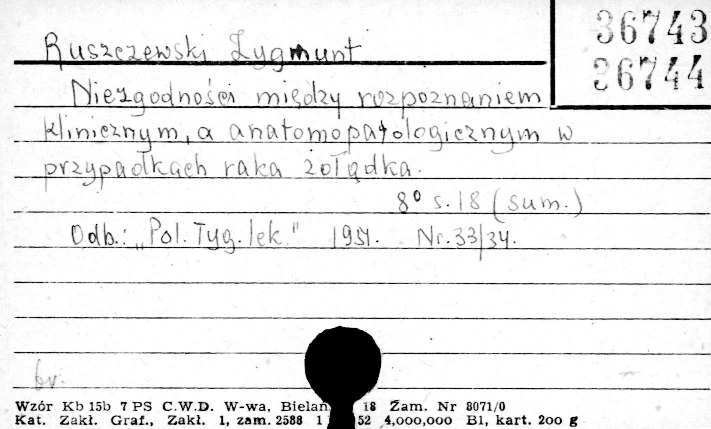 36743
36744
Ruszczewski Zygmunt
Niezgodności między rozpoznaniem
klinicznym, a anatomopatologicznym w
przypadkach raka żołądka.
8° s.18 (sum.)
Odb.: „Pol. Tyg. lek." 1951. Nr. 33/34.
br.
Wzór Kb 15b 7 PS C.W.D. W-wa, 18 Zam. Nr 8071/0
Kat. Zakł. Graf., Zakł. 1, zam. 2588 1 52 4,000,000 B1, kart. 200 g